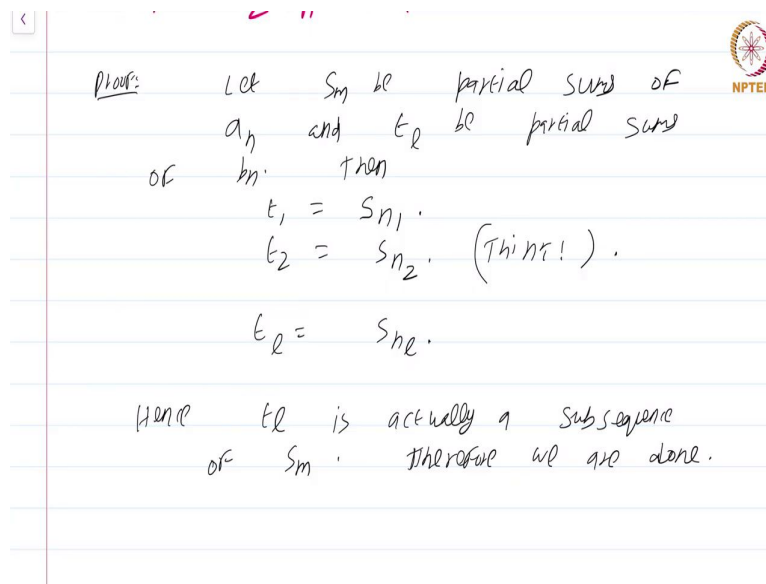 Proof: Let Sm be partial sums of
an and tl be partial sums
of bn. Then
t1 = Sn1.
t2 = Sn2. (Think!).
tl = Snl.
Hence tl is actually a subsequence
of Sm. Therefore we are done.
NPTEL